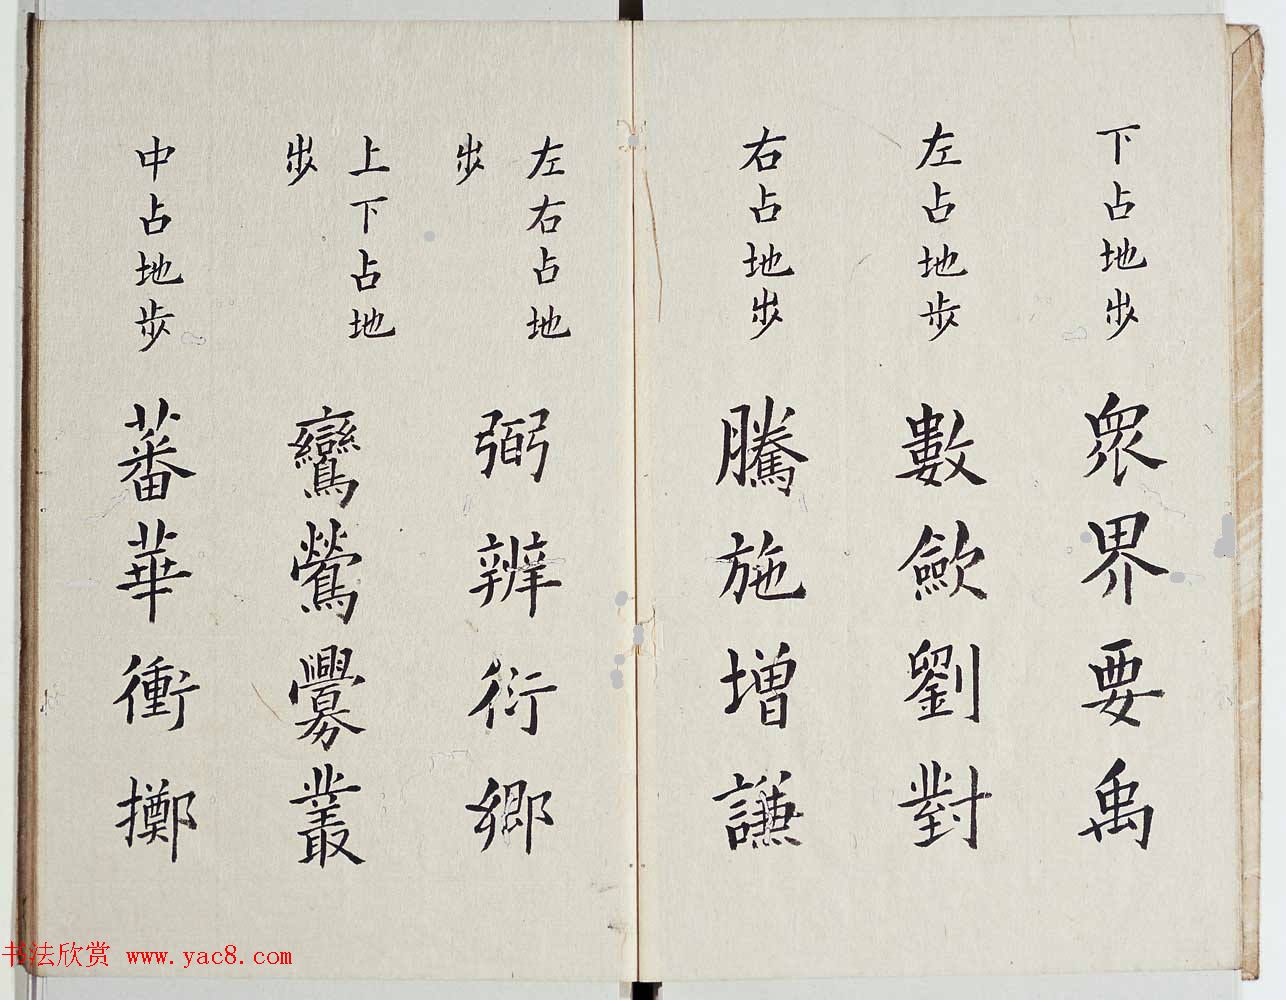 下占地步 眾界要禹
左占地步 數斂劉對
右占地步 騰施增謙
左右占地步 弼辨衍鄉
上下占地步 鸞鶯釁叢
中占地步 蕃華衝擲
书法欣赏 www.yac8.com